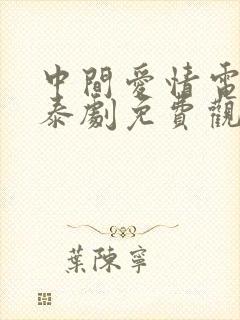 中間愛情電
泰劇免費觀
葉陳寧